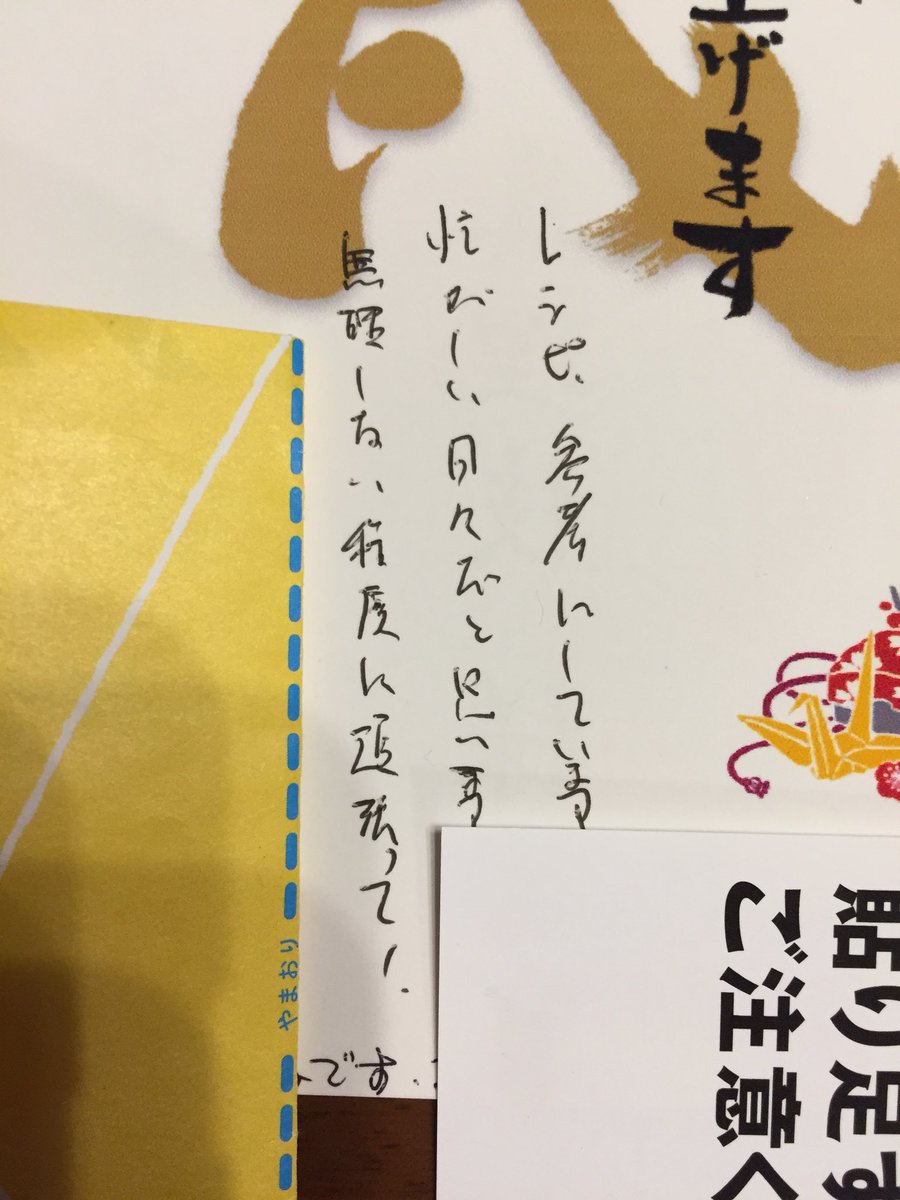 上げます
レシピ、参考にしています
忙がしい日々だと思います
無理しない程度に頑張って!
です
やまおり
貼り足す
ご注意く